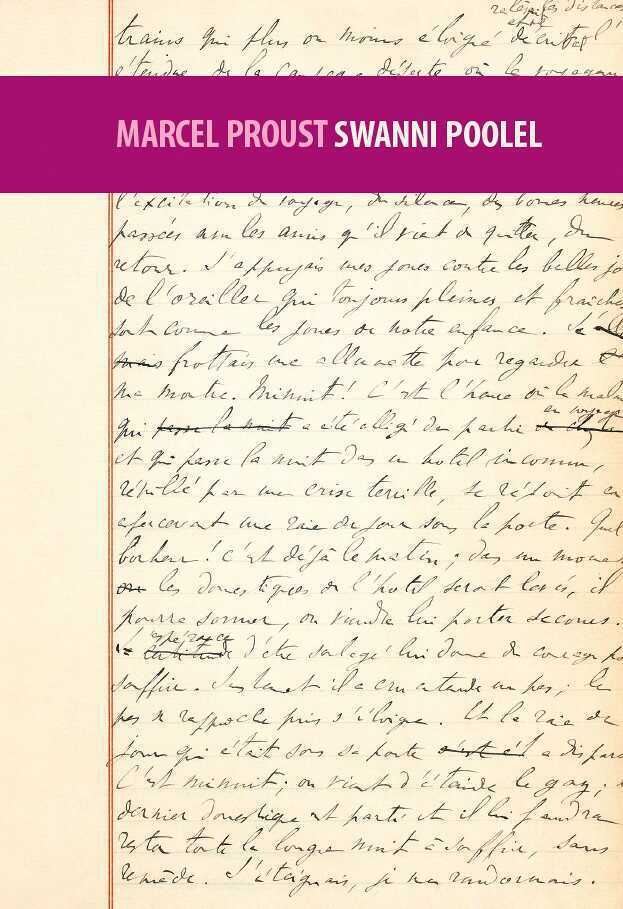 ralentissant les distances
étend
trains qui plus ou moins éloigné décrivait l'
étendue de la campagne déserte où le voyageur
MARCEL PROUST SWANNI POOLEL
l'excitation du voyage, du silence, des bonnes heures
passées avec les amis qu'il vient de quitter, du
retour. J'appuyais mes joues contre les belles jo
de l'oreiller qui toujours pleines et fraîches
sont comme les joues de notre enfance. Je
frottais une allumette pour regarder
ma montre. Minuit! C'est l'heure où le malad
en voyage
qui passe la nuit a été obligé de partir
et qui passe la nuit dans un hotel inconnu,
réveillé par une crise terrible, se réjouit en
apercevant une raie de jour sous la porte. Quel
bonheur! C'est déjà le matin; dans un momen
ou les domestiques de l'hotel seront levés, il
pourra sonner, on viendra lui porter secours.
espérance
certitude d'être soulagé lui donne du courage po
souffrir. Justement il a cru entendre un pas; le
pas se rapproche puis s'éloigne. Et la raie de
jour qui était sous sa porte c'est a dispar
C'est minuit; on vient d'éteindre le gaz;
dernier domestique est parti et il lui faudra
rester toute la longue nuit à souffrir, sans
remède. J'éteignais, je me rendormais.